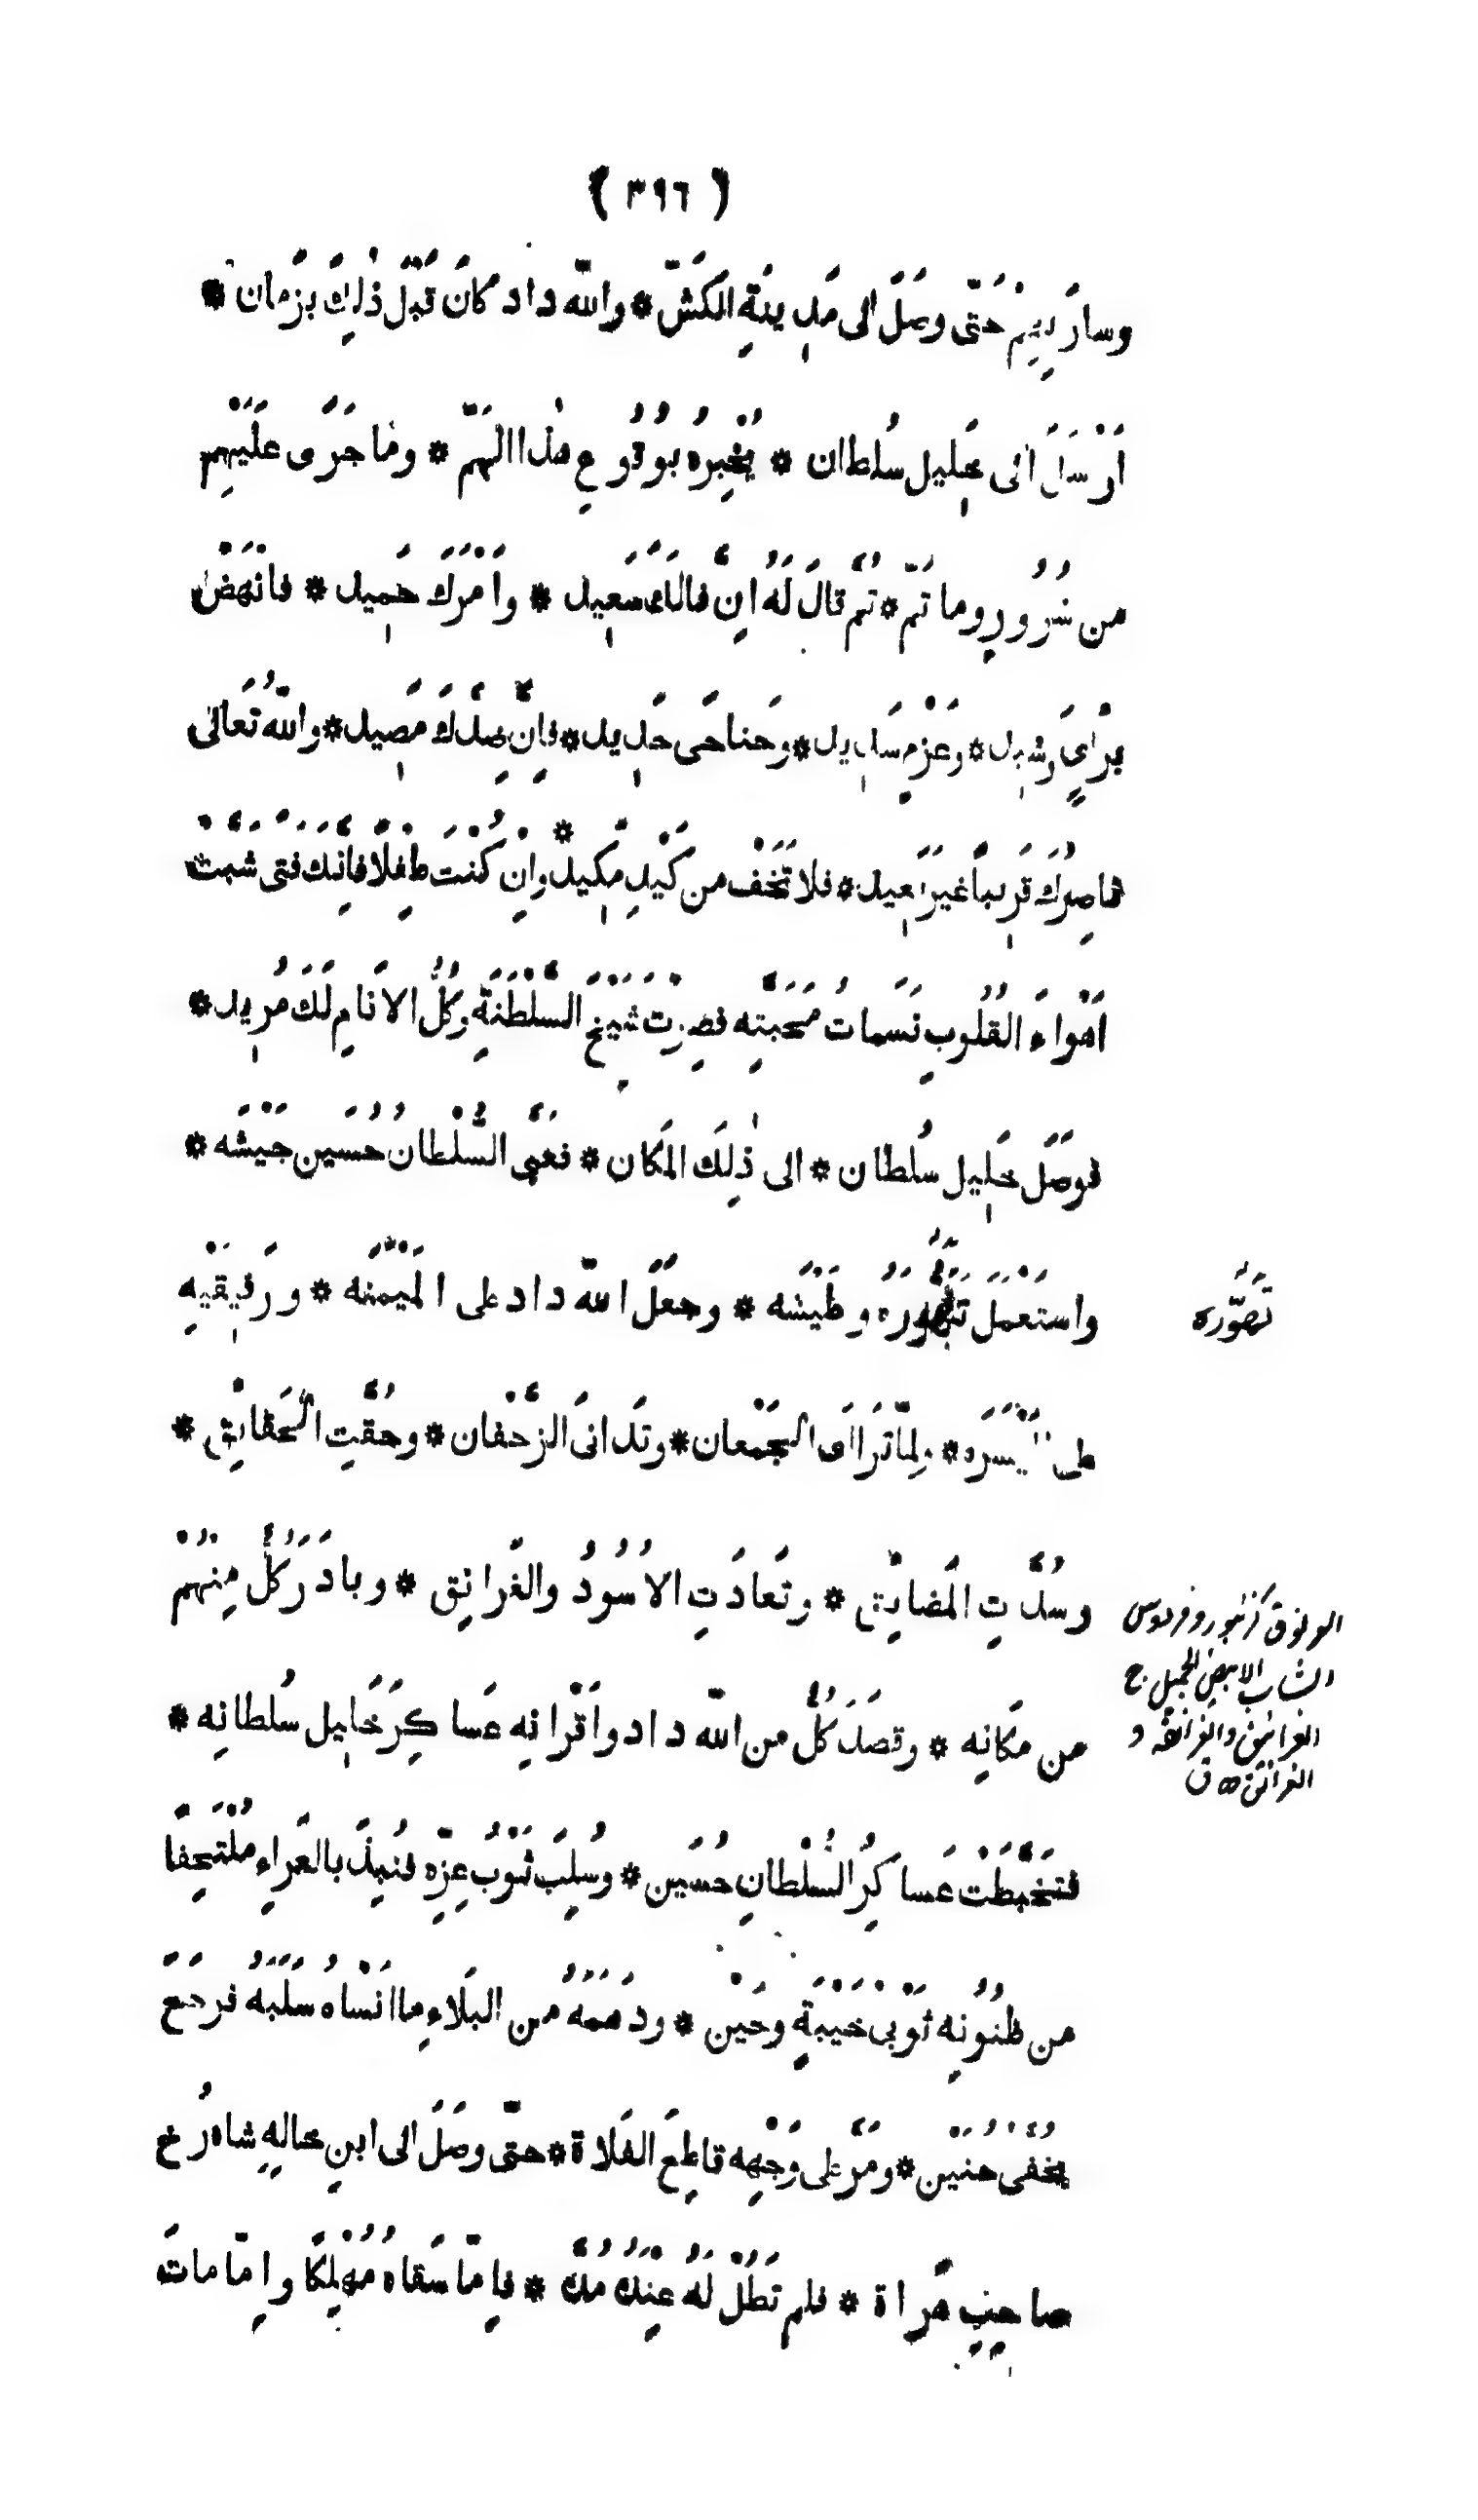 ( ٣٩٦ )
وسارَ بِهِمْ حَتّى وصَلَ الى مَدِينَةِ الكَشّ * واللّه داد كانَ قَبْلَ ذٰلِكَ بزَمان *
اَرْسَلَ الى خَلِيل سُلطان * يُخْبِرُه بوُقُوعِ هٰذا الهَمّ * وما جَرَى عَلَيْهِم
من شُرُورٍ وما تَمّ * ثُمّ قالَ لَهُ اِنّ فالَكَ سَعِيد * واَمْرَكَ حَمِيد * فانْهَضْ
برَأيٍ رشِيد * وعَزْمٍ سَدِيد * وجَناحَى حَدِيد * فاِنّ صِيدَكَ مَصِيد * واللّهُ تَعالى
ناصِرُكَ قَرِيباً غَيرَ بَعِيد * فلا تَخَفْ من كَيْدِ مَكِيد * واِنْ كُنْتَ طِفْلاً فاِنّكَ فَتى شَبّتْ
اَهْواءَ القُلُوبِ نَسَماتُ مَحَبّتِه فصِرْتَ شَيْخَ السّلْطَنَةِ وكُلُّ الانَامِ لَكَ مُرِيد *
فوَصَلَ خَلِيل سُلطان * الى ذٰلِكَ المَكان * فعَبّى السُّلْطانُ حُسَين جَيْشَه *
واستَعْمَلَ تَهَوُّرَه وطَيْشَه * وجعَلَ اللّه داد على المَيْمَنَه * ورَفِيقَيْهِ
على المَيْسَرَه * ولمّا تَرَاأى الجَمْعان * وتَدانَى الزّحْفان * وحُقّتِ الحَقائِق *
وسُدّتِ المَضائِق * وتَعادَتِ الاُسُودُ والغَرانِق * وبادَرَ كُلٌّ مِنْهُمْ
من مَكانِه * وقصَدَ كُلٌّ من اللّه داد واَقْرانِه عَساكِرَ خَلِيل سُلطانِه *
فتَخَبّطَتْ عَساكِرُ السُّلْطانِ حُسَين * وسُلِبَ ثَوْبُ عِزِّه فنُبِذَ بالعَراءِ مُلْتَحِفًا
من ظنُونِه ثَوْبَى خَيْبَةٍ وحَيْن * ودَهَمَهُ من البَلاءِ ما اَنْساهُ سَلَبَهُ فرجَعَ
بخُفّى حُنَيْن * ومَرّ على وَجْهِه قاطِعَ الفَلاة * حتّى وصَلَ الى ابنِ خالِهِ شاه رُخ
صاحِبِ هَراة * فلم تَطُلْ لَهُ عِنْدَهُ مُدّه * فاِمّا سَقاهُ مُهْلِكًا واِمّا ماتَ
تَهَوُّرَه
الغرنوق كزنبور وفردوس
الشاب الابيض الجميل ج
الغرانيق والغرانقه و
الغرانق ه ق